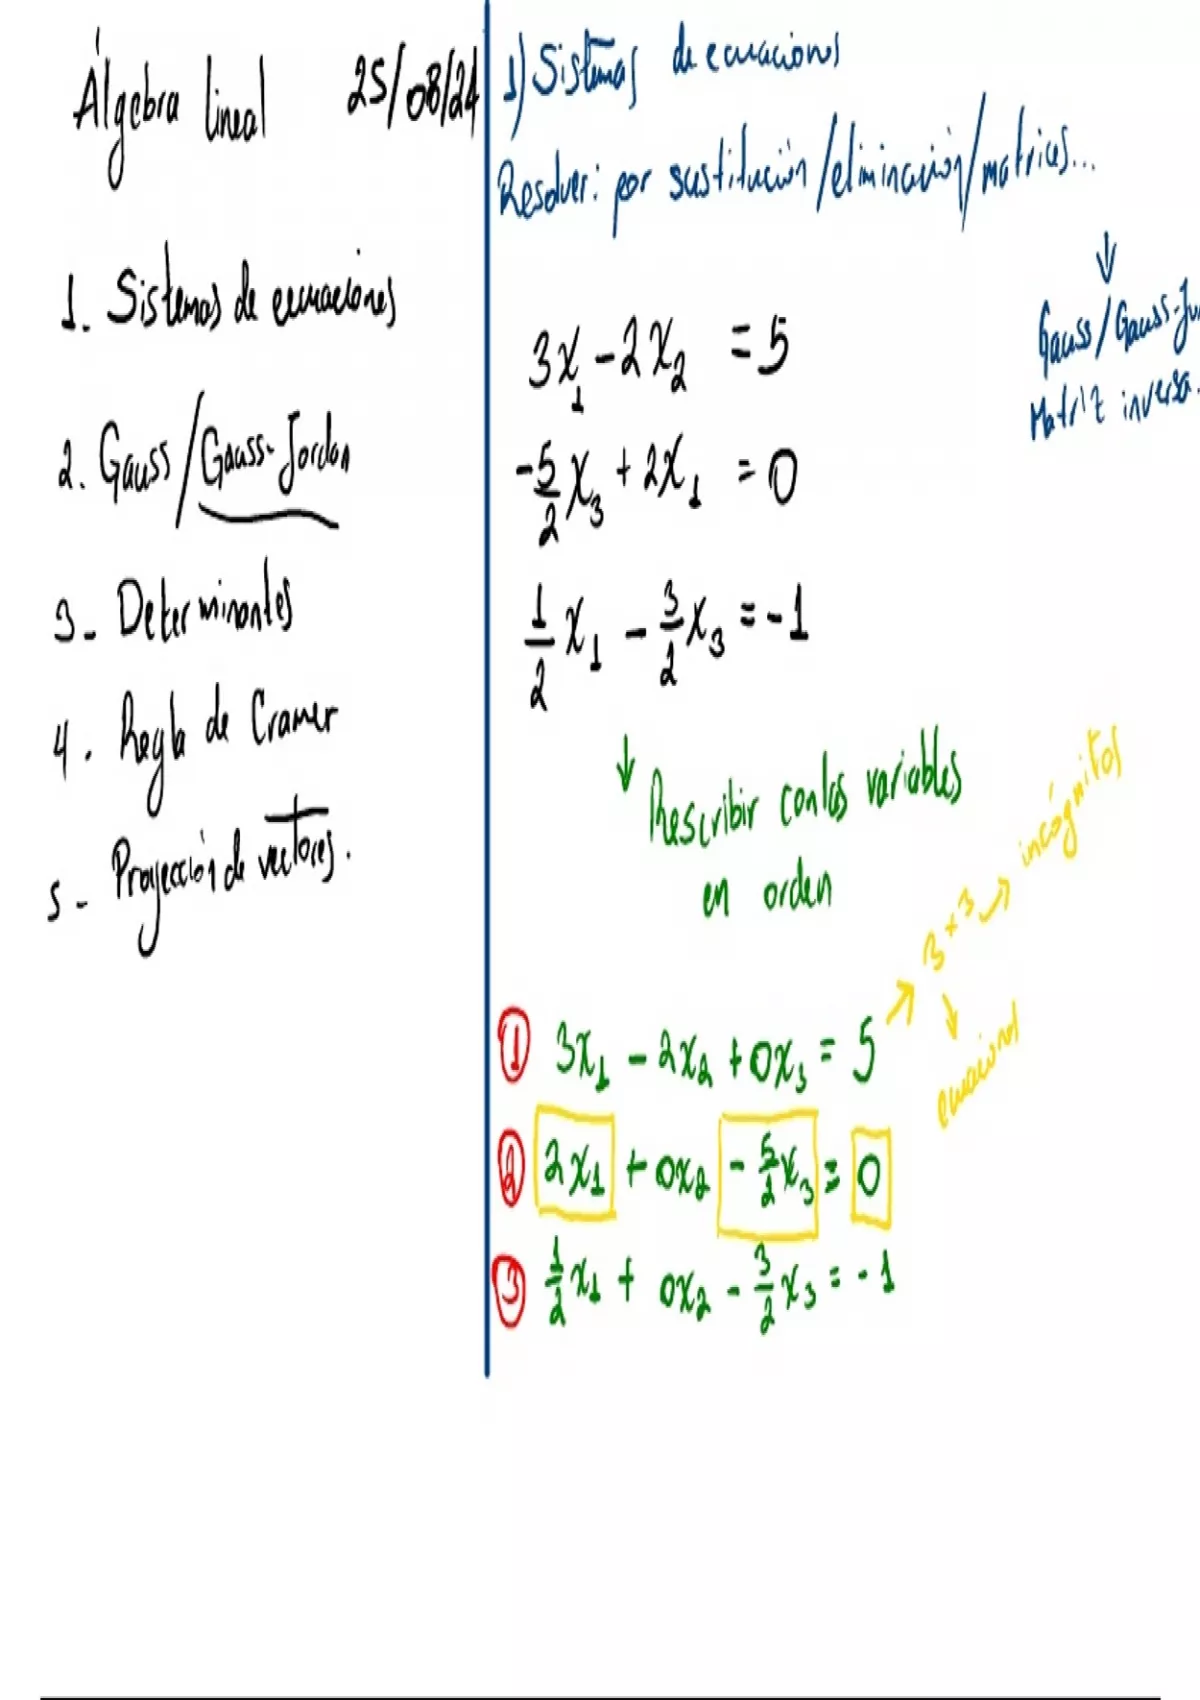 Álgebra lineal 25/08/24
1. Sistemas de ecuaciones
2. Gauss/Gauss-Jordan
3- Determinantes
4. Regla de Cramer
5- Proyección de vectores.
1) Sistemas de ecuaciones
Resolver: por sustitución/eliminación/matrices...
↓
Gauss/Gauss-Jo
Matriz inversa.
3x₁ - 2x₂ = 5
-5/2 x₃ + 2x₁ = 0
1/2 x₁ - 3/2 x₃ = -1
↓ Rescribir con las variables
en orden
→ 3×3 → incógnitas
↓
ecuaciones
① 3x₁ - 2x₂ + 0x₃ = 5
② 2x₁ + 0x₂ - 5/2 x₃ = 0
③ 1/2 x₁ + 0x₂ - 3/2 x₃ = -1